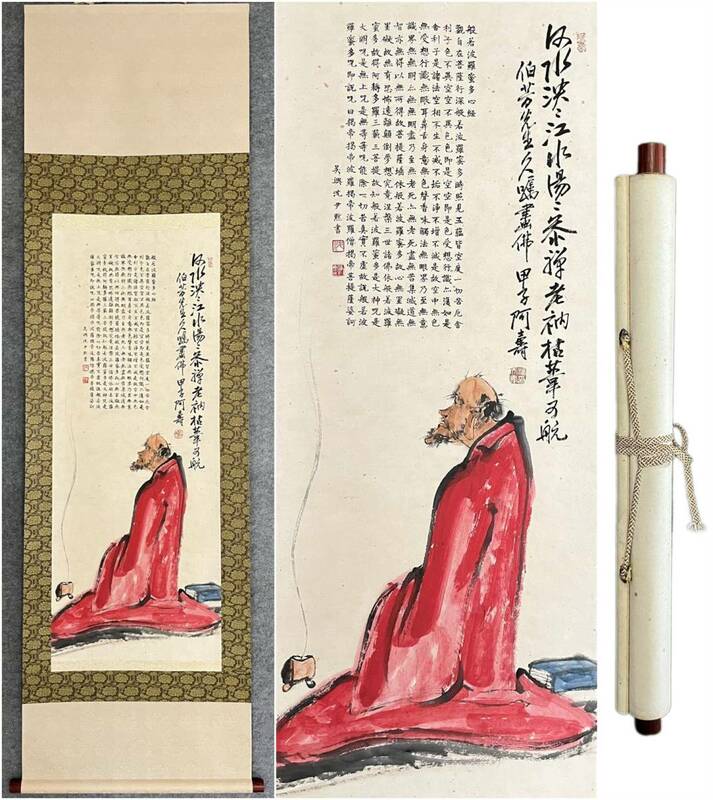 河水淡〻江水湯〻參禪老衲枯葦可航
伯芳先生久囑畫佛 甲子阿壽
般若波羅蜜多心經
觀自在菩薩行深般若波羅蜜多時照見五蘊皆空度一切苦厄舍
利子色不異空空不異色色即是空空即是色受想行識亦復如是
舍利子是諸法空相不生不滅不垢不淨不增不減是故空中無色
無受想行識無眼耳鼻舌身意無色聲香味觸法無眼界乃至無意
識界無無明亦無無明盡乃至無老死亦無老死盡無苦集滅道無
智亦無得以無所得故菩提薩埵依般若波羅蜜多故心無罣礙無
罣礙故無有恐怖遠離顛倒夢想究竟涅槃三世諸佛依般若波羅
蜜多故得阿耨多羅三藐三菩提故知般若波羅蜜多是大神咒是
大明咒是無上咒是無等等咒能除一切苦真實不虛故說般若波
羅蜜多咒即說咒曰揭帝揭帝波羅揭帝波羅僧揭帝菩提薩婆訶
吳興沈尹默書